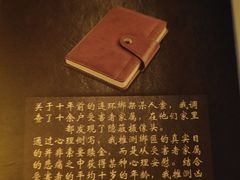 关于十年前的连环绑架杀人案，我调
查了十余户受害者家属，在他们家里
都发现了隐蔽摄像头。
通过心理侧写，我推测绑匪的真实目
的并非索要赎金，而是从受害者家属
的悲痛之中获得某种心理安慰。结合
受害者的平均十岁的年龄，我推测凶